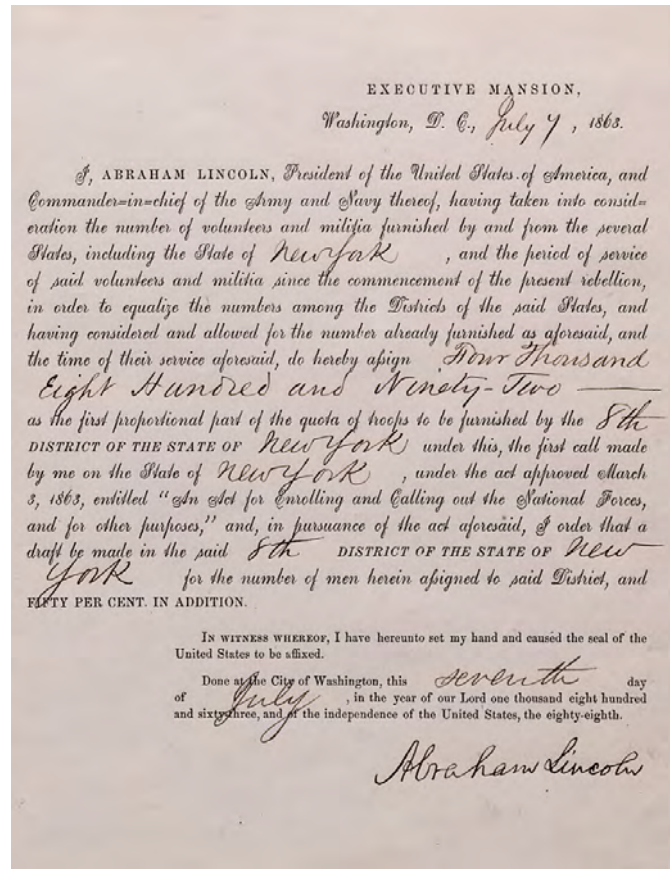 EXECUTIVE MANSION,
Washington, D. C., July 7, 1863.
I, ABRAHAM LINCOLN, President of the United States of America, and
Commander-in-chief of the Army and Navy thereof, having taken into consid-
eration the number of volunteers and militia furnished by and from the several
States, including the State of New York , and the period of service
of said volunteers and militia since the commencement of the present rebellion,
in order to equalize the numbers among the Districts of the said States, and
having considered and allowed for the number already furnished as aforesaid, and
the time of their service aforesaid, do hereby assign Four Thousand
Eight Hundred and Ninety-Two —
as the first proportional part of the quota of troops to be furnished by the 8th
DISTRICT OF THE STATE OF New York under this, the first call made
by me on the State of New York , under the act approved March
3, 1863, entitled “An Act for Enrolling and Calling out the National Forces,
and for other purposes,” and, in pursuance of the act aforesaid, I order that a
draft be made in the said 8th DISTRICT OF THE STATE OF New
York for the number of men herein assigned to said District, and
FIFTY PER CENT. IN ADDITION.
IN WITNESS WHEREOF, I have hereunto set my hand and caused the seal of the
United States to be affixed.
Done at the City of Washington, this seventh day
of July , in the year of our Lord one thousand eight hundred
and sixty-three, and of the independence of the United States, the eighty-eighth.
Abraham Lincoln